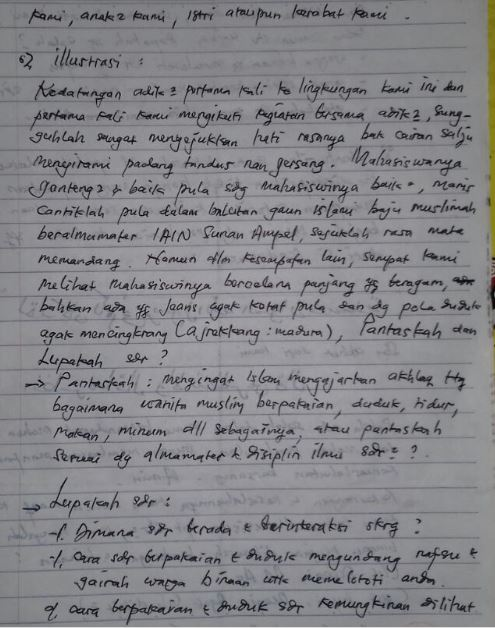 kami, anak2 kami, istri ataupun kerabat kami.
illustrasi :
Kedatangan adik2 pertama kali ke lingkungan kami ini dan
pertama kali kami mengikuti kegiatan bersama adik2, sung-
guhlah sangat menyejukkan hati rasanya bak cairan salju
mengirami padang tandus nan gersang. Mahasiswanya
ganteng2 & baik pula sdg mahasiswinya baik2, manis
cantiklah pula dalam balutan gaun islami baju muslimah
beralmamater IAIN Sunan Ampel, sejuklah rasa mata
memandang. Namun dlm kesempatan lain, sempat kami
melihat mahasiswinya bercelana panjang yg beragam,
bahkan ada yg jeans agak ketat pula dan dg pola duduk
agak mencingkrang (ajrekkang : madura), Pantaskah dan
Lupakah sdr ?
→ Pantaskah : mengingat islam mengajarkan akhlaq ttg
bagaimana wanita muslim berpakaian, duduk, tidur,
makan, minum dll sebagainya, atau pantaskah
sesuai dg almamater & disiplin ilmu sdr2 ?.
→ Lupakah sdr :
Dimana sdr berada & berinteraksi skrg ?
cara sdr berpakaian & duduk mengundang nafsu &
gairah warga binaan utk memelototi anda.
cara berpakaian & duduk sdr kemungkinan dilihat